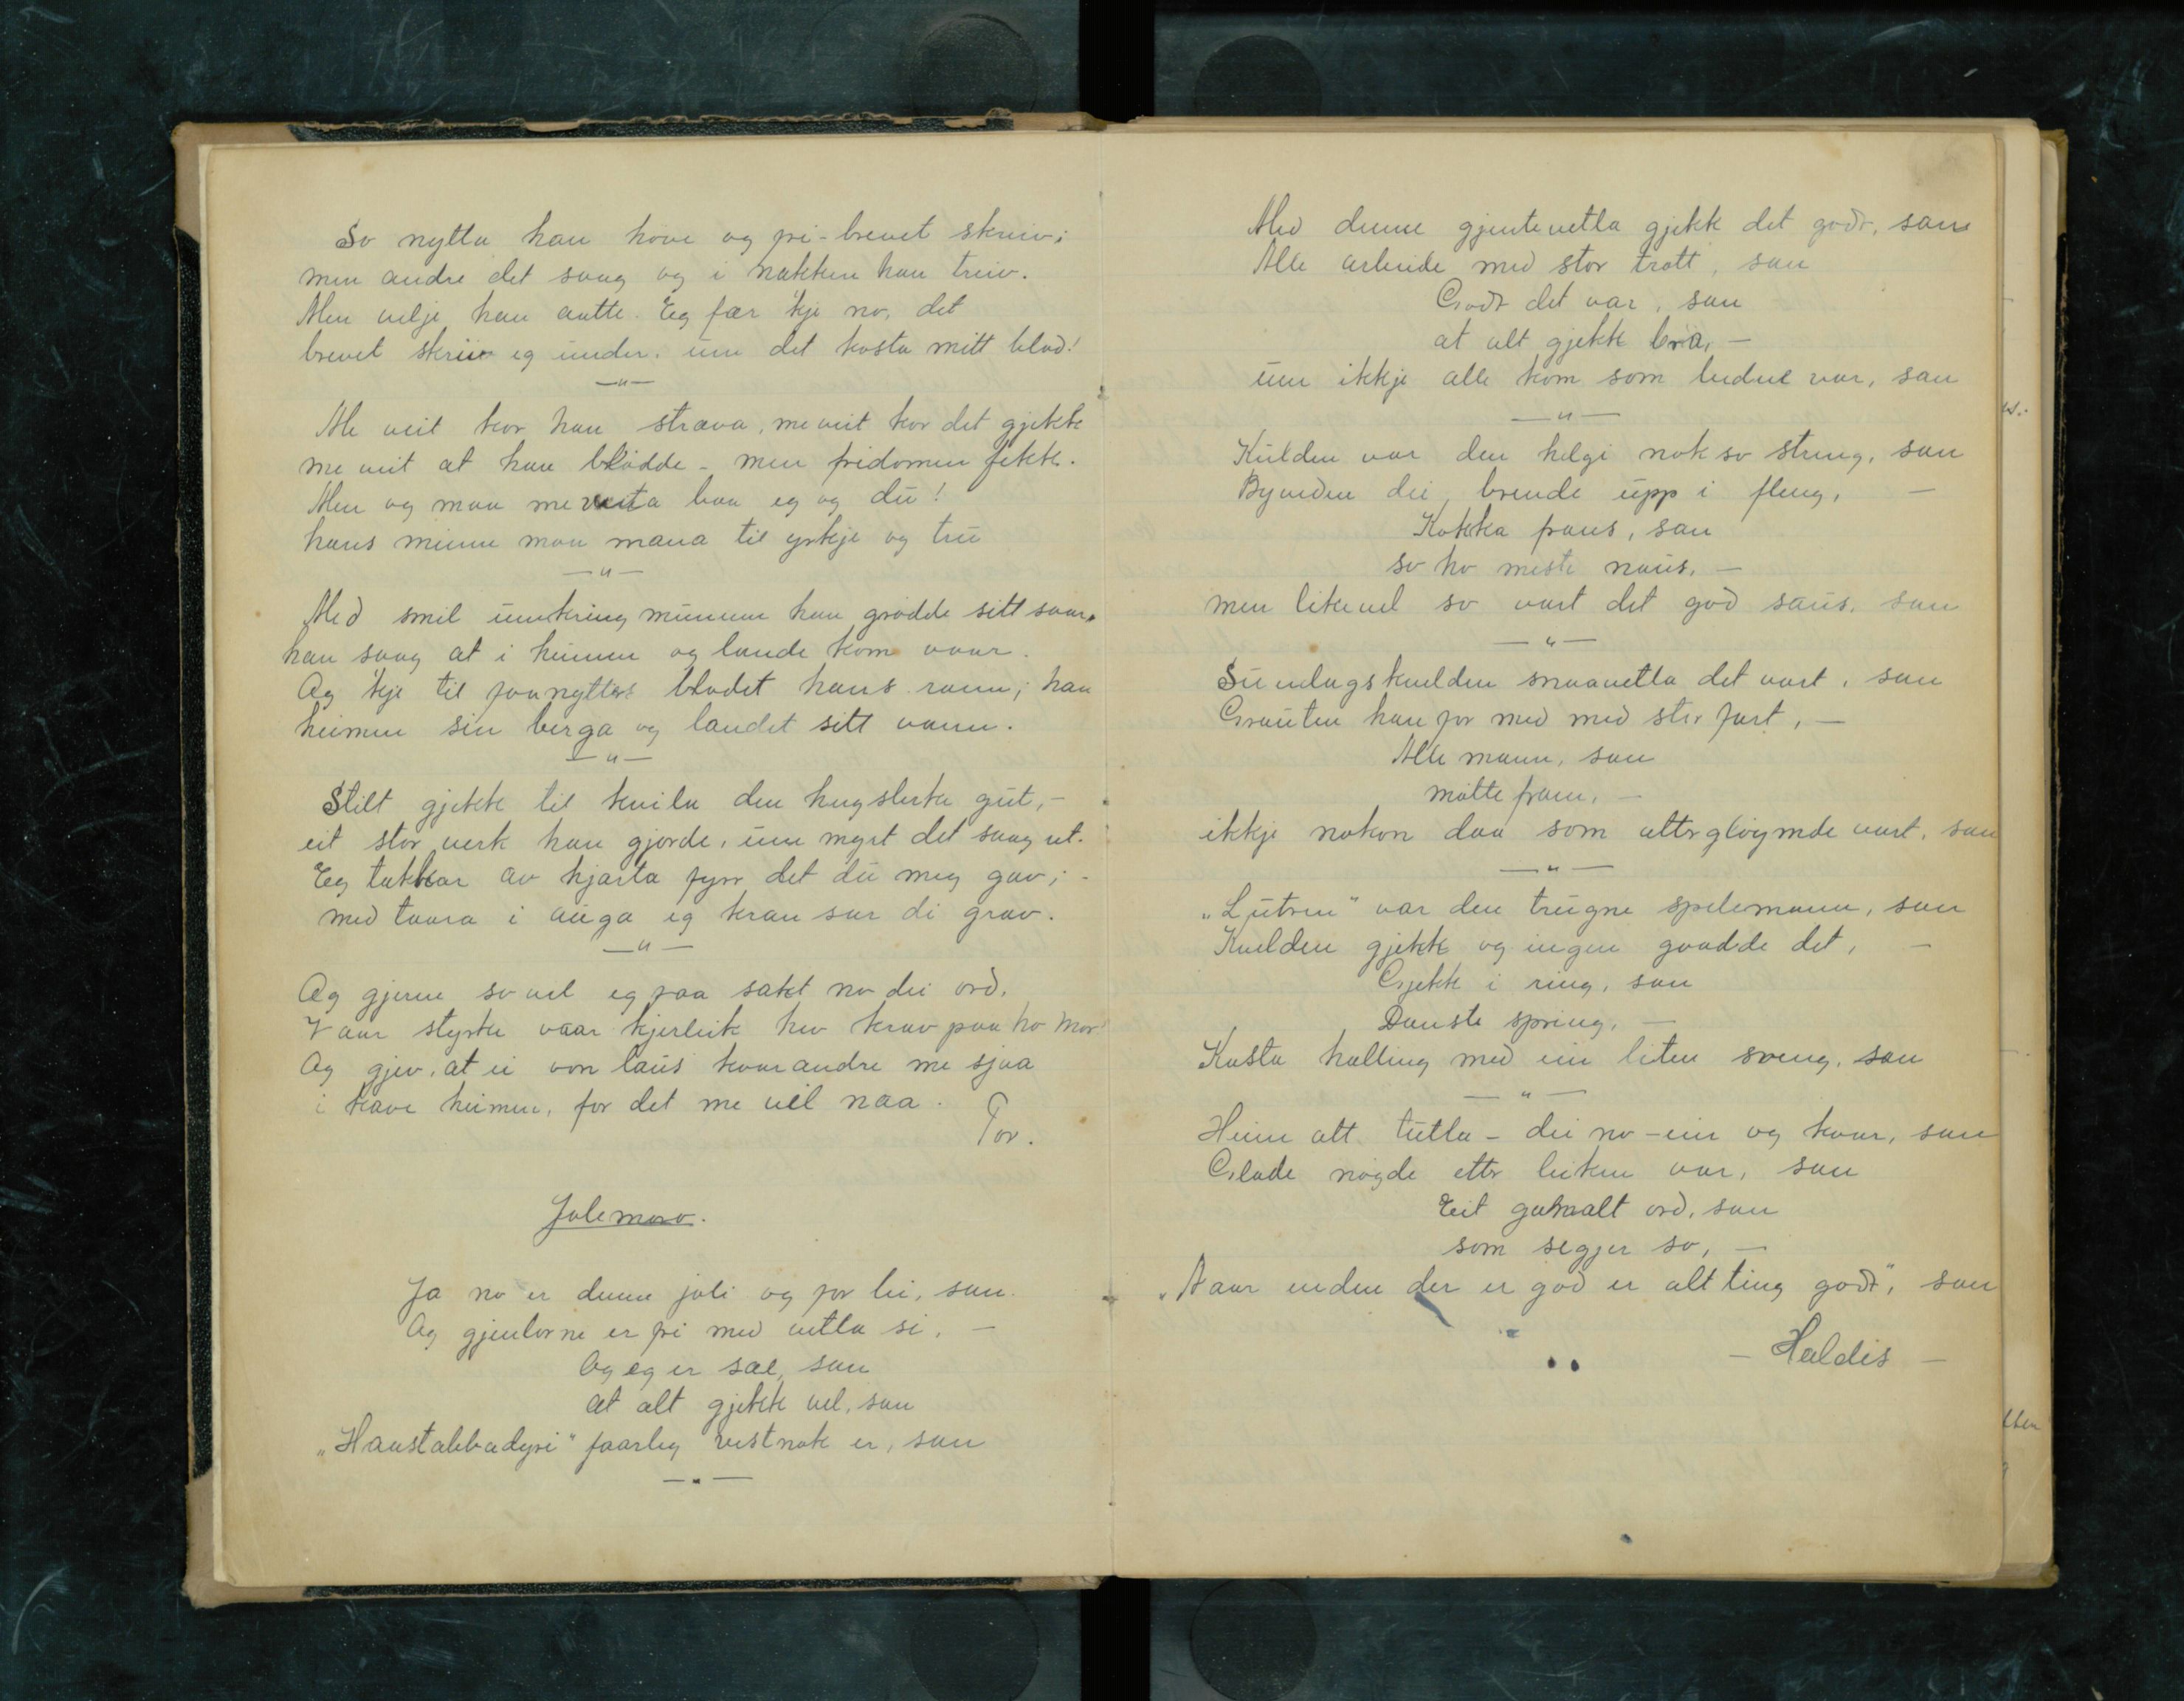 So nytta han høve og fri-brevet skreiv;
men andre det saag og i nakken han treiv.
Men vilje han aatte. Eg fær kje ro, det
brevet skriv eg under. um det kosta mitt blod!
—"—
Me veit kor han stræva, me veit kor det gjekk
me veit at han blødde – men fridomen fekk.
Men og maa me veta baa eg og du!
hans minne maa mana til yrkje og tru
—"—
Med smil umkring munnen han grødde sitt saar,
han saag at i heimen og lande kom vaar.
Og kje til faanyttes blodet hans rann; han
heimen sin berga og landet sitt vann.
—"—
Stilt gjekk til kvila den hugsterke gut, –
eit stor verk han gjorde, um myrt det saag ut.
Eg takkar av hjarta fyrr det du meg gav; –
med taara i auga eg kransar di grav.
—"—
Og gjerne so vel eg faa sakt no dei ord.
Vaar styrke vaar kjerleik hev krav paa ho mor!
Og gjev, at ei von laus kvarandre me sjaa
i kave heimen, for det me vil naa.
Tor.
Jolemoro.
Ja no er denne joli og for bi, san.
Og gjentorne er fri med vetla si, —
Og eg er sæl, san
at alt gjekk vel, san
„Haustabbadyri" faarleg vestnok er, san
—"—
Med denne gjentevetla gjekk det godt, san
Alle arbeide med stor trott, san
Godt det var, san
at alt gjekk bra, —
um ikkje alle kom som bedne var, san
—"—
Kulden var den helgi nok so streng, san
Byveden dei brende upp i fleng, —
Kokka fraus, san
so ho miste naus, —
men likevel so vart det god saus, san
—"—
Sundagskvelden smaavetla det vart, san
Grauten han for ned med stor fart, —
Alle mann, san
møtte fram, —
ikkje nokon daa som attergløymde vart, san
—"—
„Lutren" var den trugne spelemann, san
Kvelden gjekk og ingen gaadde det, —
Gjekk i ring, san
Danste spring, —
Kasta halling med ein liten sveng, san
—"—
Heim att tutla – dei no – ein og kvar, san
Glade nøgde etter leiken var, san
Eit gamalt ord, san
som segjer so, —
„Naar enden der er god er allting godt", san
— Haldis —